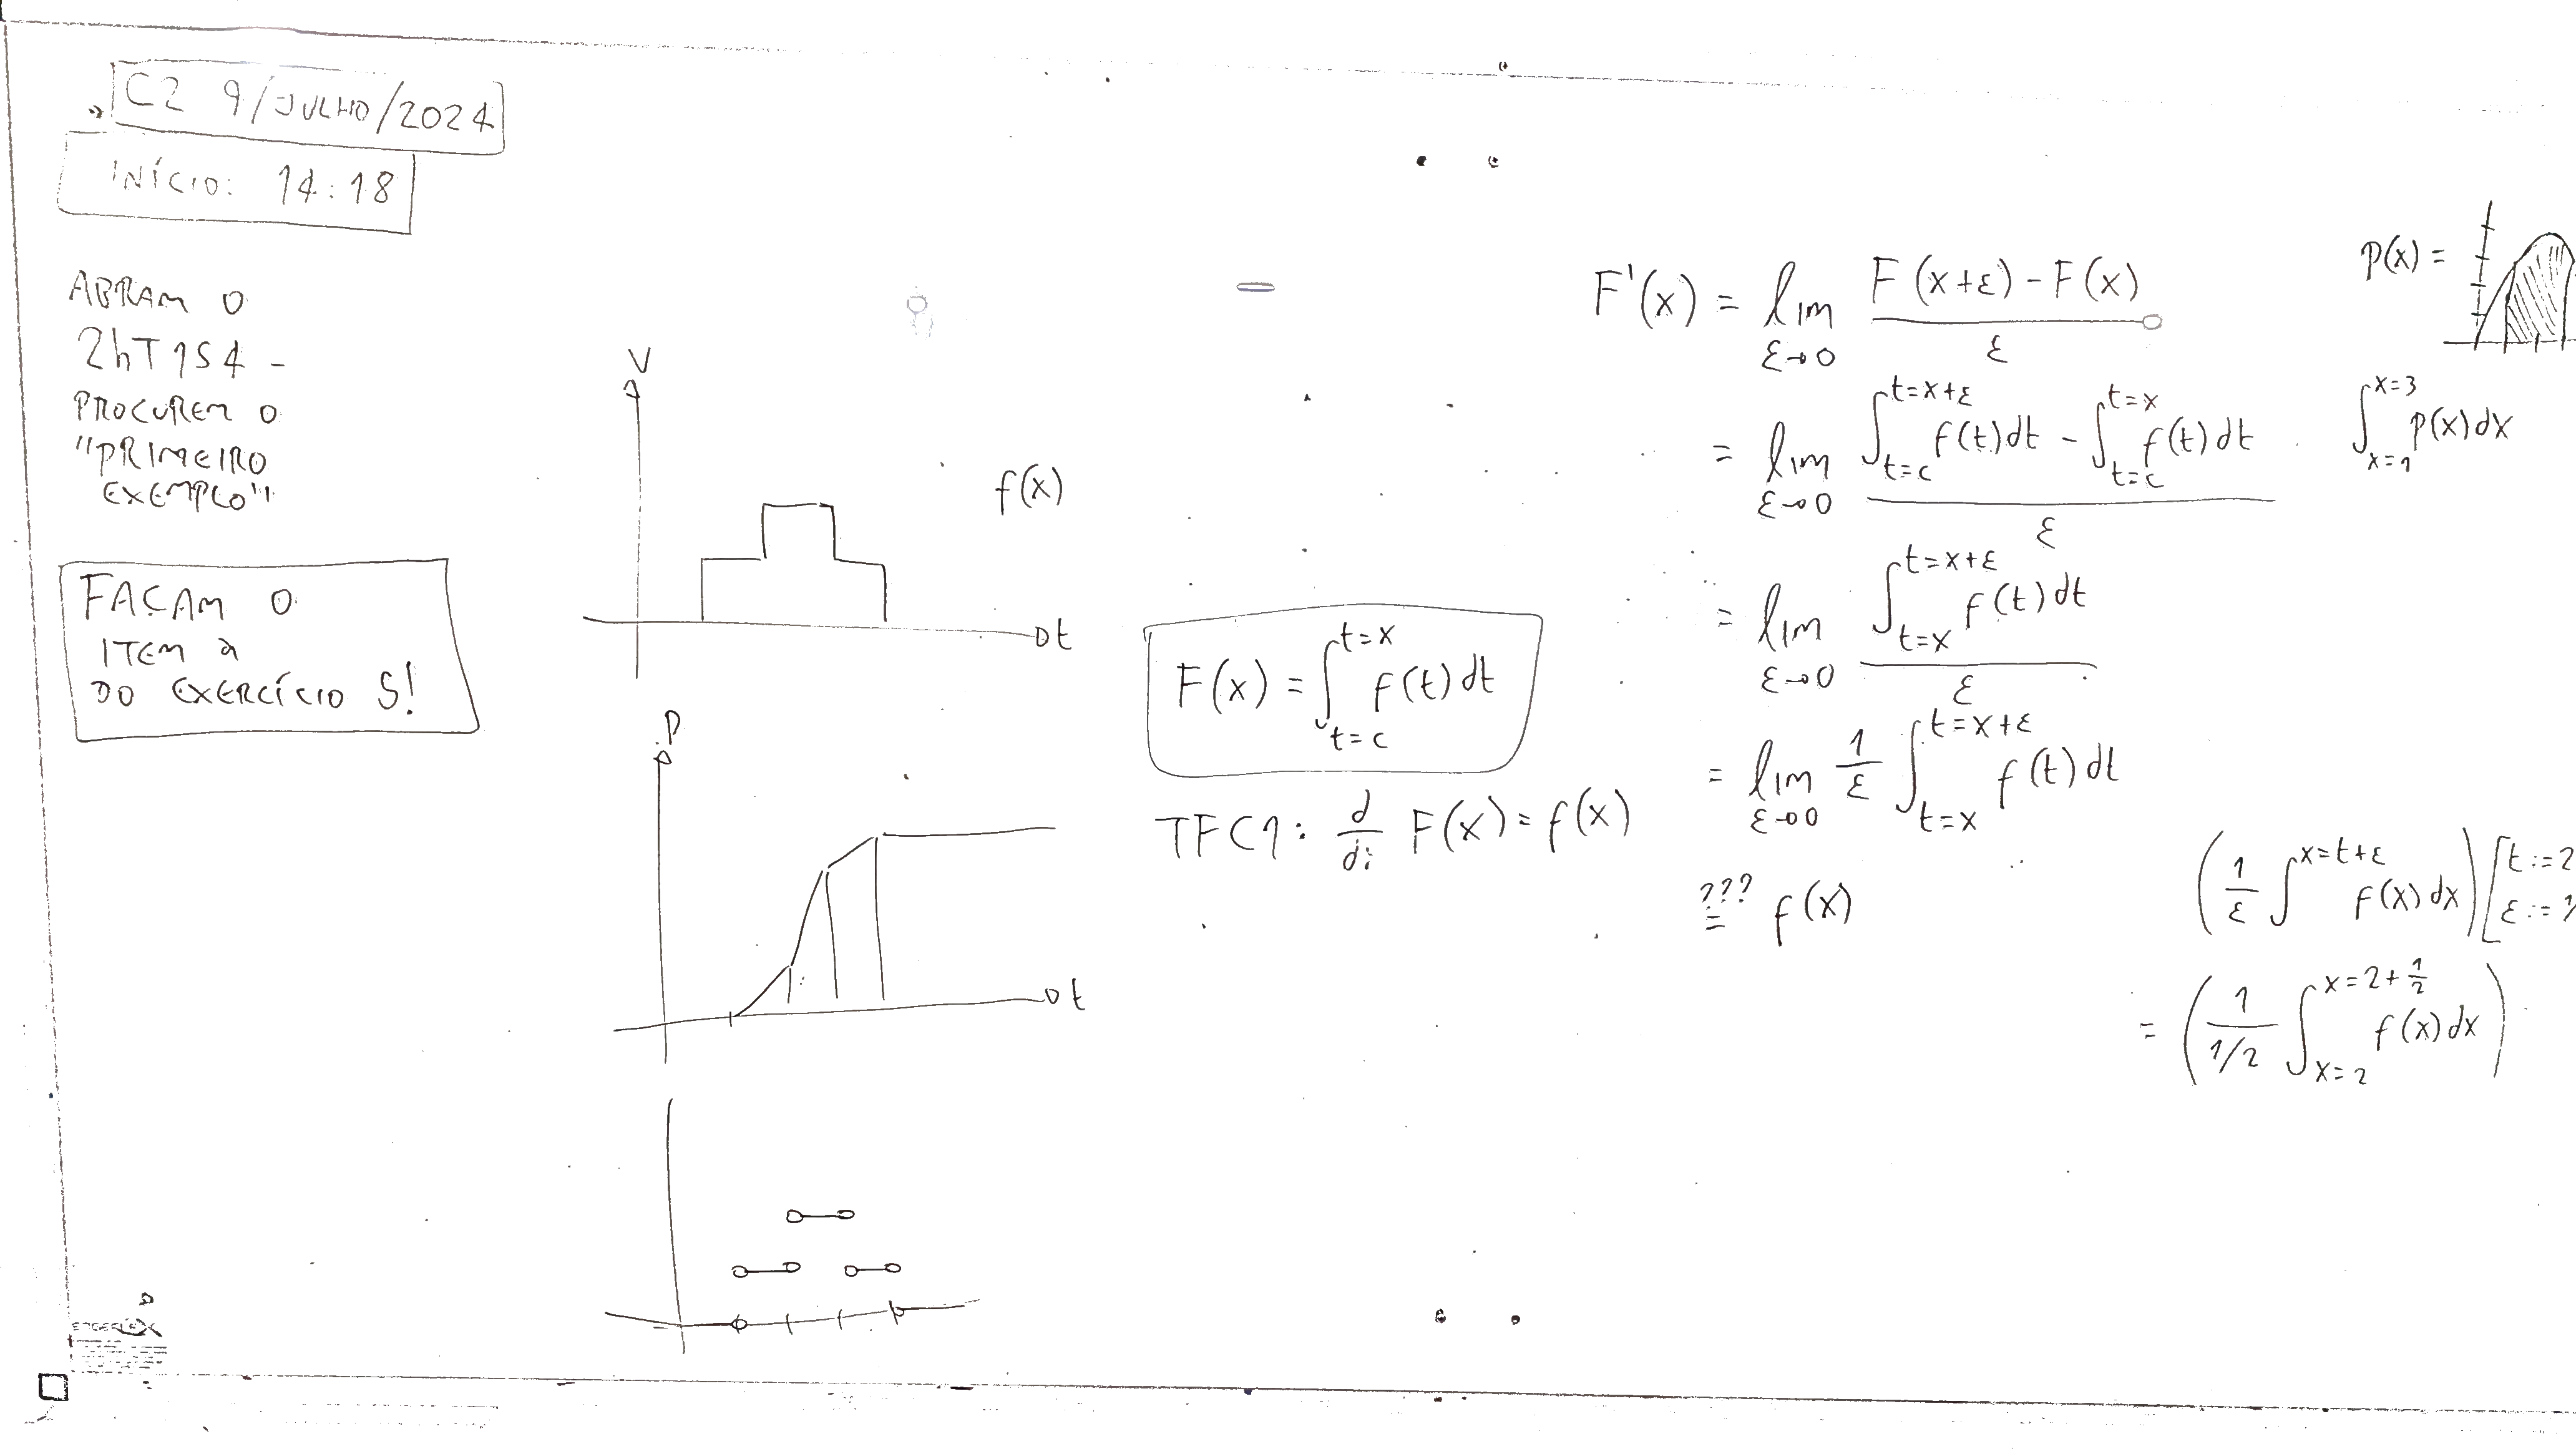 C2 9/JULHO/2024
INÍCIO: 14:18
ABRAM O
2hT154 -
PROCUREM O
"PRIMEIRO
EXEMPLO"
FAÇAM O
ITEM a
DO EXERCÍCIO 5!
V
f(x)
t
P
t
F(x) = ∫_{t=c}^{t=x} f(t) dt
TFC1: d/d: F(x) = f(x)
F'(x) = lim_{ε→0} (F(x+ε) - F(x))/ε
= lim_{ε→0} (∫_{t=c}^{t=x+ε} f(t) dt - ∫_{t=c}^{t=x} f(t) dt)/ε
= lim_{ε→0} (∫_{t=x}^{t=x+ε} f(t) dt)/ε
= lim_{ε→0} 1/ε ∫_{t=x}^{t=x+ε} f(t) dt
???
= f(x)
P(x) =
∫_{x=1}^{x=3} P(x) dx
(1/ε ∫^{x=t+ε} f(x) dx) [t:=2
ε:=1/
= (1/(1/2) ∫_{x=2}^{x=2+1/2} f(x) dx)